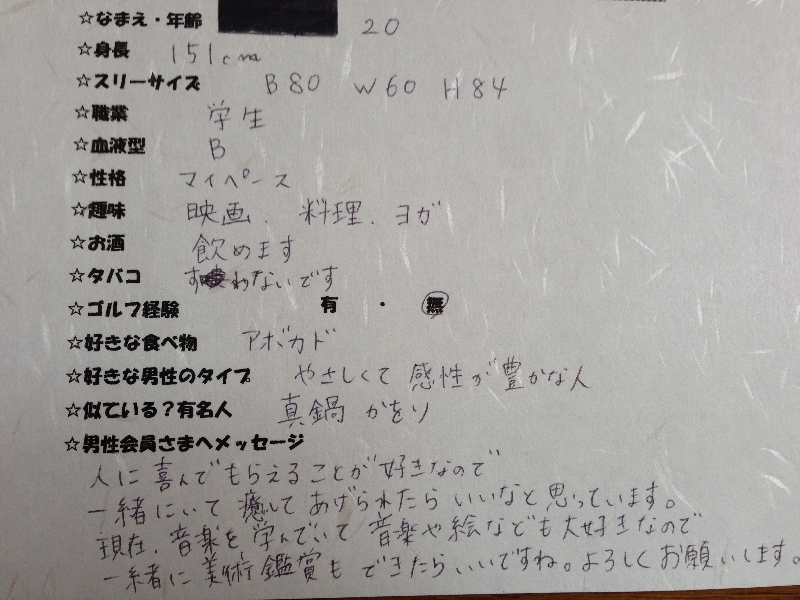 ☆なまえ・年齢 20
☆身長 151cm
☆スリーサイズ B80 W60 H84
☆職業 学生
☆血液型 B
☆性格 マイペース
☆趣味 映画、料理、ヨガ
☆お酒 飲めます
☆タバコ すわないです
☆ゴルフ経験 有 ・ 無
☆好きな食べ物 アボカド
☆好きな男性のタイプ やさしくて 感性が豊かな人
☆似ている?有名人 真鍋かをり
☆男性会員さまへメッセージ
人に喜んでもらえることが好きなので
一緒にいて癒してあげられたらいいなと思っています。
現在、音楽を学んでいて音楽や絵なども大好きなので
一緒に美術鑑賞もできたらいいですね。よろしくお願いします。